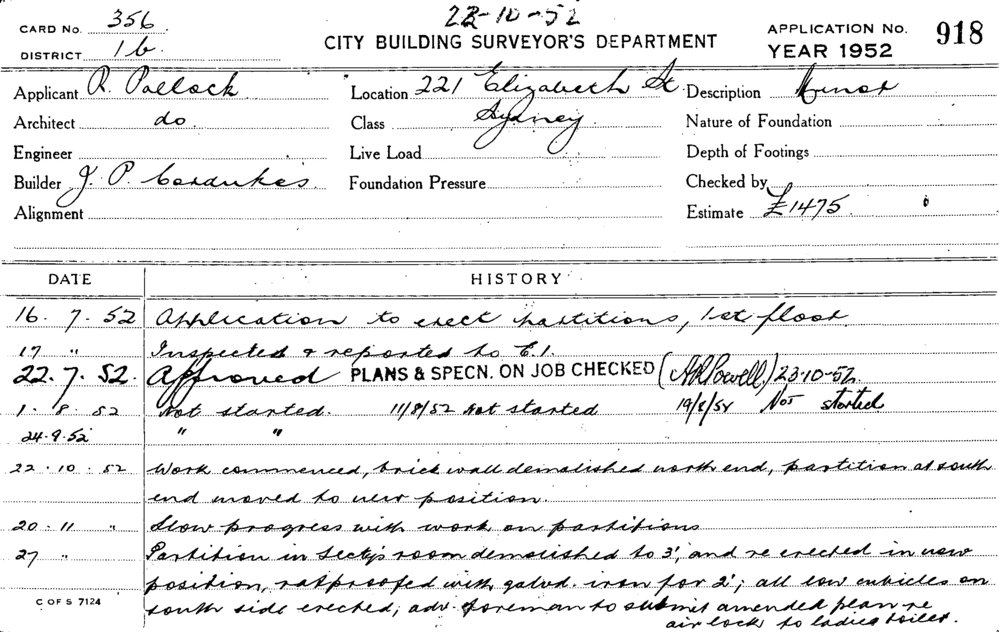 22-10-52
CARD NO. 356
CITY BUILDING SURVEYOR'S DEPARTMENT
APPLICATION NO. 918
DISTRICT 1b.
YEAR 1952
Applicant R. Pollock
Location 221 Elizabeth St. Sydney
Description Minor
Architect do.
Class
Nature of Foundation
Engineer
Live Load
Depth of Footings
Builder J. P. Cordukes.
Foundation Pressure
Checked by
Alignment
Estimate £1475.
DATE HISTORY
16. 7. 52 Application to erect partitions, 1st floor.
17 " Inspected & reported to C.I.
22. 7. 52. Approved PLANS & SPECN. ON JOB CHECKED (A R Powell) 23-10-52.
1. 8. 52 Not started. 11/8/52 Not started 19/8/52 Not started
24.9.52 " "
22. 10. 52 Work commenced, brick wall demolished north end, partition at south
end moved to new position.
20. 11 " Slow progress with work on partitions
27 " Partition in Secty's room demolished to 3', and re erected in new
position, ratproofed with galvd. iron for 2'; all low cubicles on
south side erected; adv. foreman to submit amended plan re
air lock to ladies toilet.
C OF S 7124